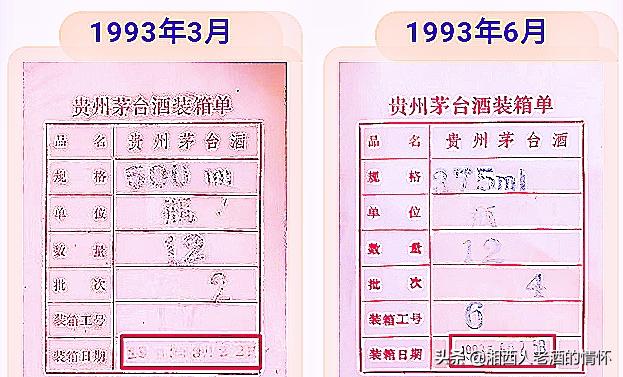 1993年3月
贵州茅台酒装箱单
品 名 贵州茅台酒
规 格 500 ml
单 位 瓶
数 量 12
批 次 2
装箱工号
装箱日期
1993年6月
贵州茅台酒装箱单
品 名 贵州茅台酒
规 格 375ml
单 位
数 量 12
批 次 4
装箱工号 6
装箱日期
头条 @湘西人老酒的情怀